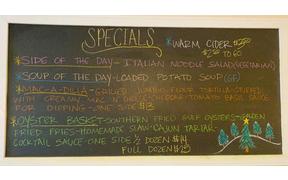 SPECIALS
*WARM CIDER $2.50
*SIDE OF THE DAY-ITALIAN NOODLE SALAD (VEGETARIAN)
*SOUP OF THE DAY-LOADED POTATO SOUP (GF)
*MAC-A-DILLA-GRILLED JUMBO FLOUR TORTILLA-STUFFED
WITH CREAMY MAC N CHEDDAR-TOMATO BASIL SAUCE
FOR DIPPING-ONE SIDE $13
*OYSTER BASKET-SOUTHERN FRIED GULF OYSTERS-
FRIED FRIES-HOMEMADE SLAW-CAJUN TARTAR
COCKTAIL SAUCE-ONE SIDE ½ DOZEN $14
FULL DOZEN